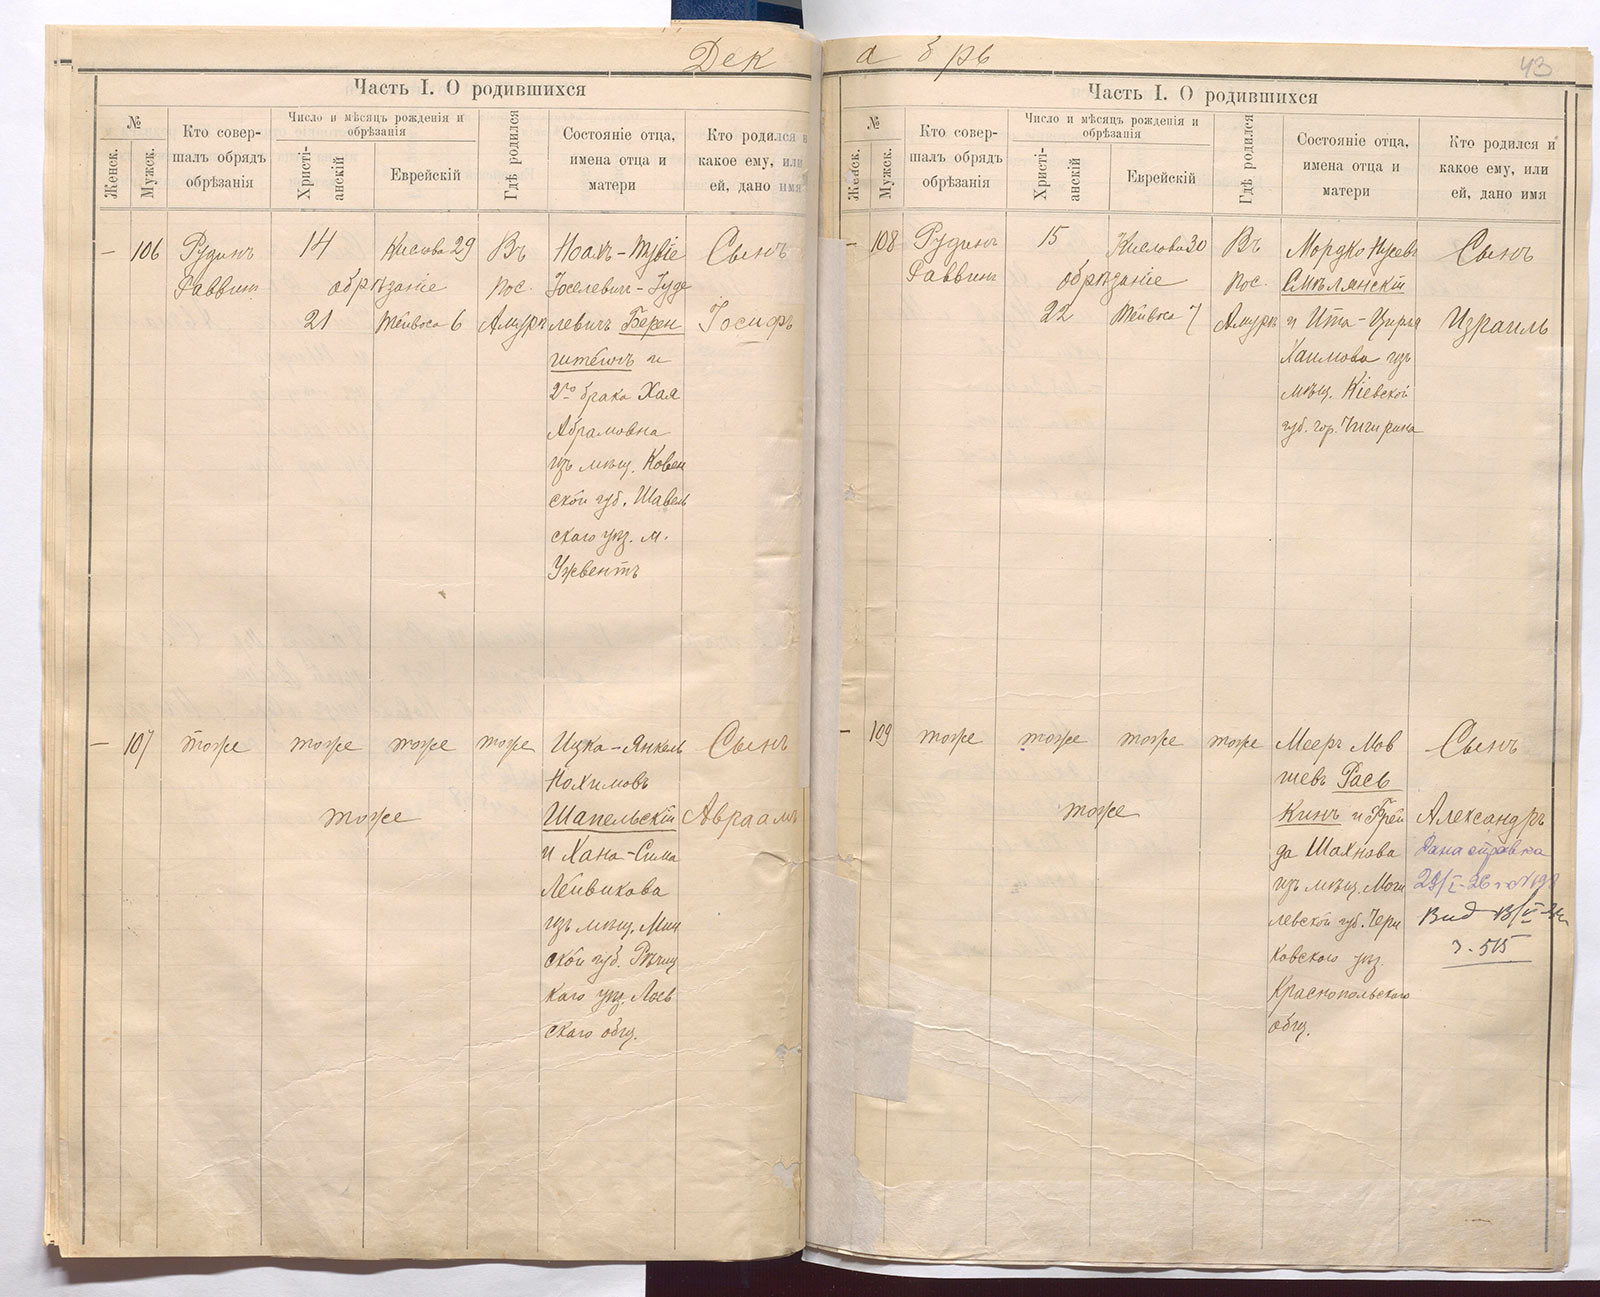 Декабрь
43
Часть I. О родившихся
№
Женск.
Мужск.
Кто совер-
шалъ обрядъ
обрѣзанія
Число и мѣсяцъ рожденія и
обрѣзанія
Христі-
анскій
Еврейскій
Гдѣ родился
Состояніе отца,
имена отца и
матери
Кто родился и
какое ему, или
ей, дано имя
— 106
Рудинъ
Раввинъ
14
Кислева 29
обрѣзаніе
21
Тейвоса 6
Въ
пос.
Амурѣ
Ноахъ-Тувіе
Іоселевич-Іуде
левичъ Берен
штейнъ и
2го брака Хая
Абрамовна
изъ мѣщ. Ковен
ской губ. Шавель
скаго уѣз. м.
Ужвентъ
Сынъ
Іосифъ
— 107
тоже
тоже
тоже
тоже
тоже
Ицка-Янкель
Нохимовъ
Шапельскій
и Хана-Сима
Лейвикова
изъ мѣщ. Мин
ской губ. Рѣчиц
каго уѣз. Лоев
скаго общ.
Сынъ
Авраамъ
Часть I. О родившихся
№
Женск.
Мужск.
Кто совер-
шалъ обрядъ
обрѣзанія
Число и мѣсяцъ рожденія и
обрѣзанія
Христі-
анскій
Еврейскій
Гдѣ родился
Состояніе отца,
имена отца и
матери
Кто родился и
какое ему, или
ей, дано имя
— 108
Рудинъ
Раввинъ
15
Кислова 30
обрѣзаніе
22
Тейвоса 7
Въ
пос.
Амурѣ
Мордко Нусевъ
Смѣлянскій
и Ита-Цирля
Хаимова изъ
мѣщ. Кіевской
губ. гор. Чигирина
Сынъ
Израиль
— 109
тоже
тоже
тоже
тоже
тоже
Мееръ Мов
шевъ Раев
кинъ и Брей
да Шахнова
изъ мѣщ. Моги
левской губ. Чери
ковскаго уѣз.
Краснопольскаго
общ.
Сынъ
Александръ
Дана справка
29/I-26
з. 515